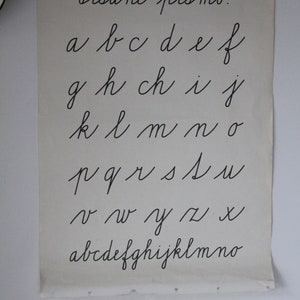 písmo:
a b c d e f
g h ch i j
k l m n o
p q r s t u
v w y z x
abcdefghijklmno